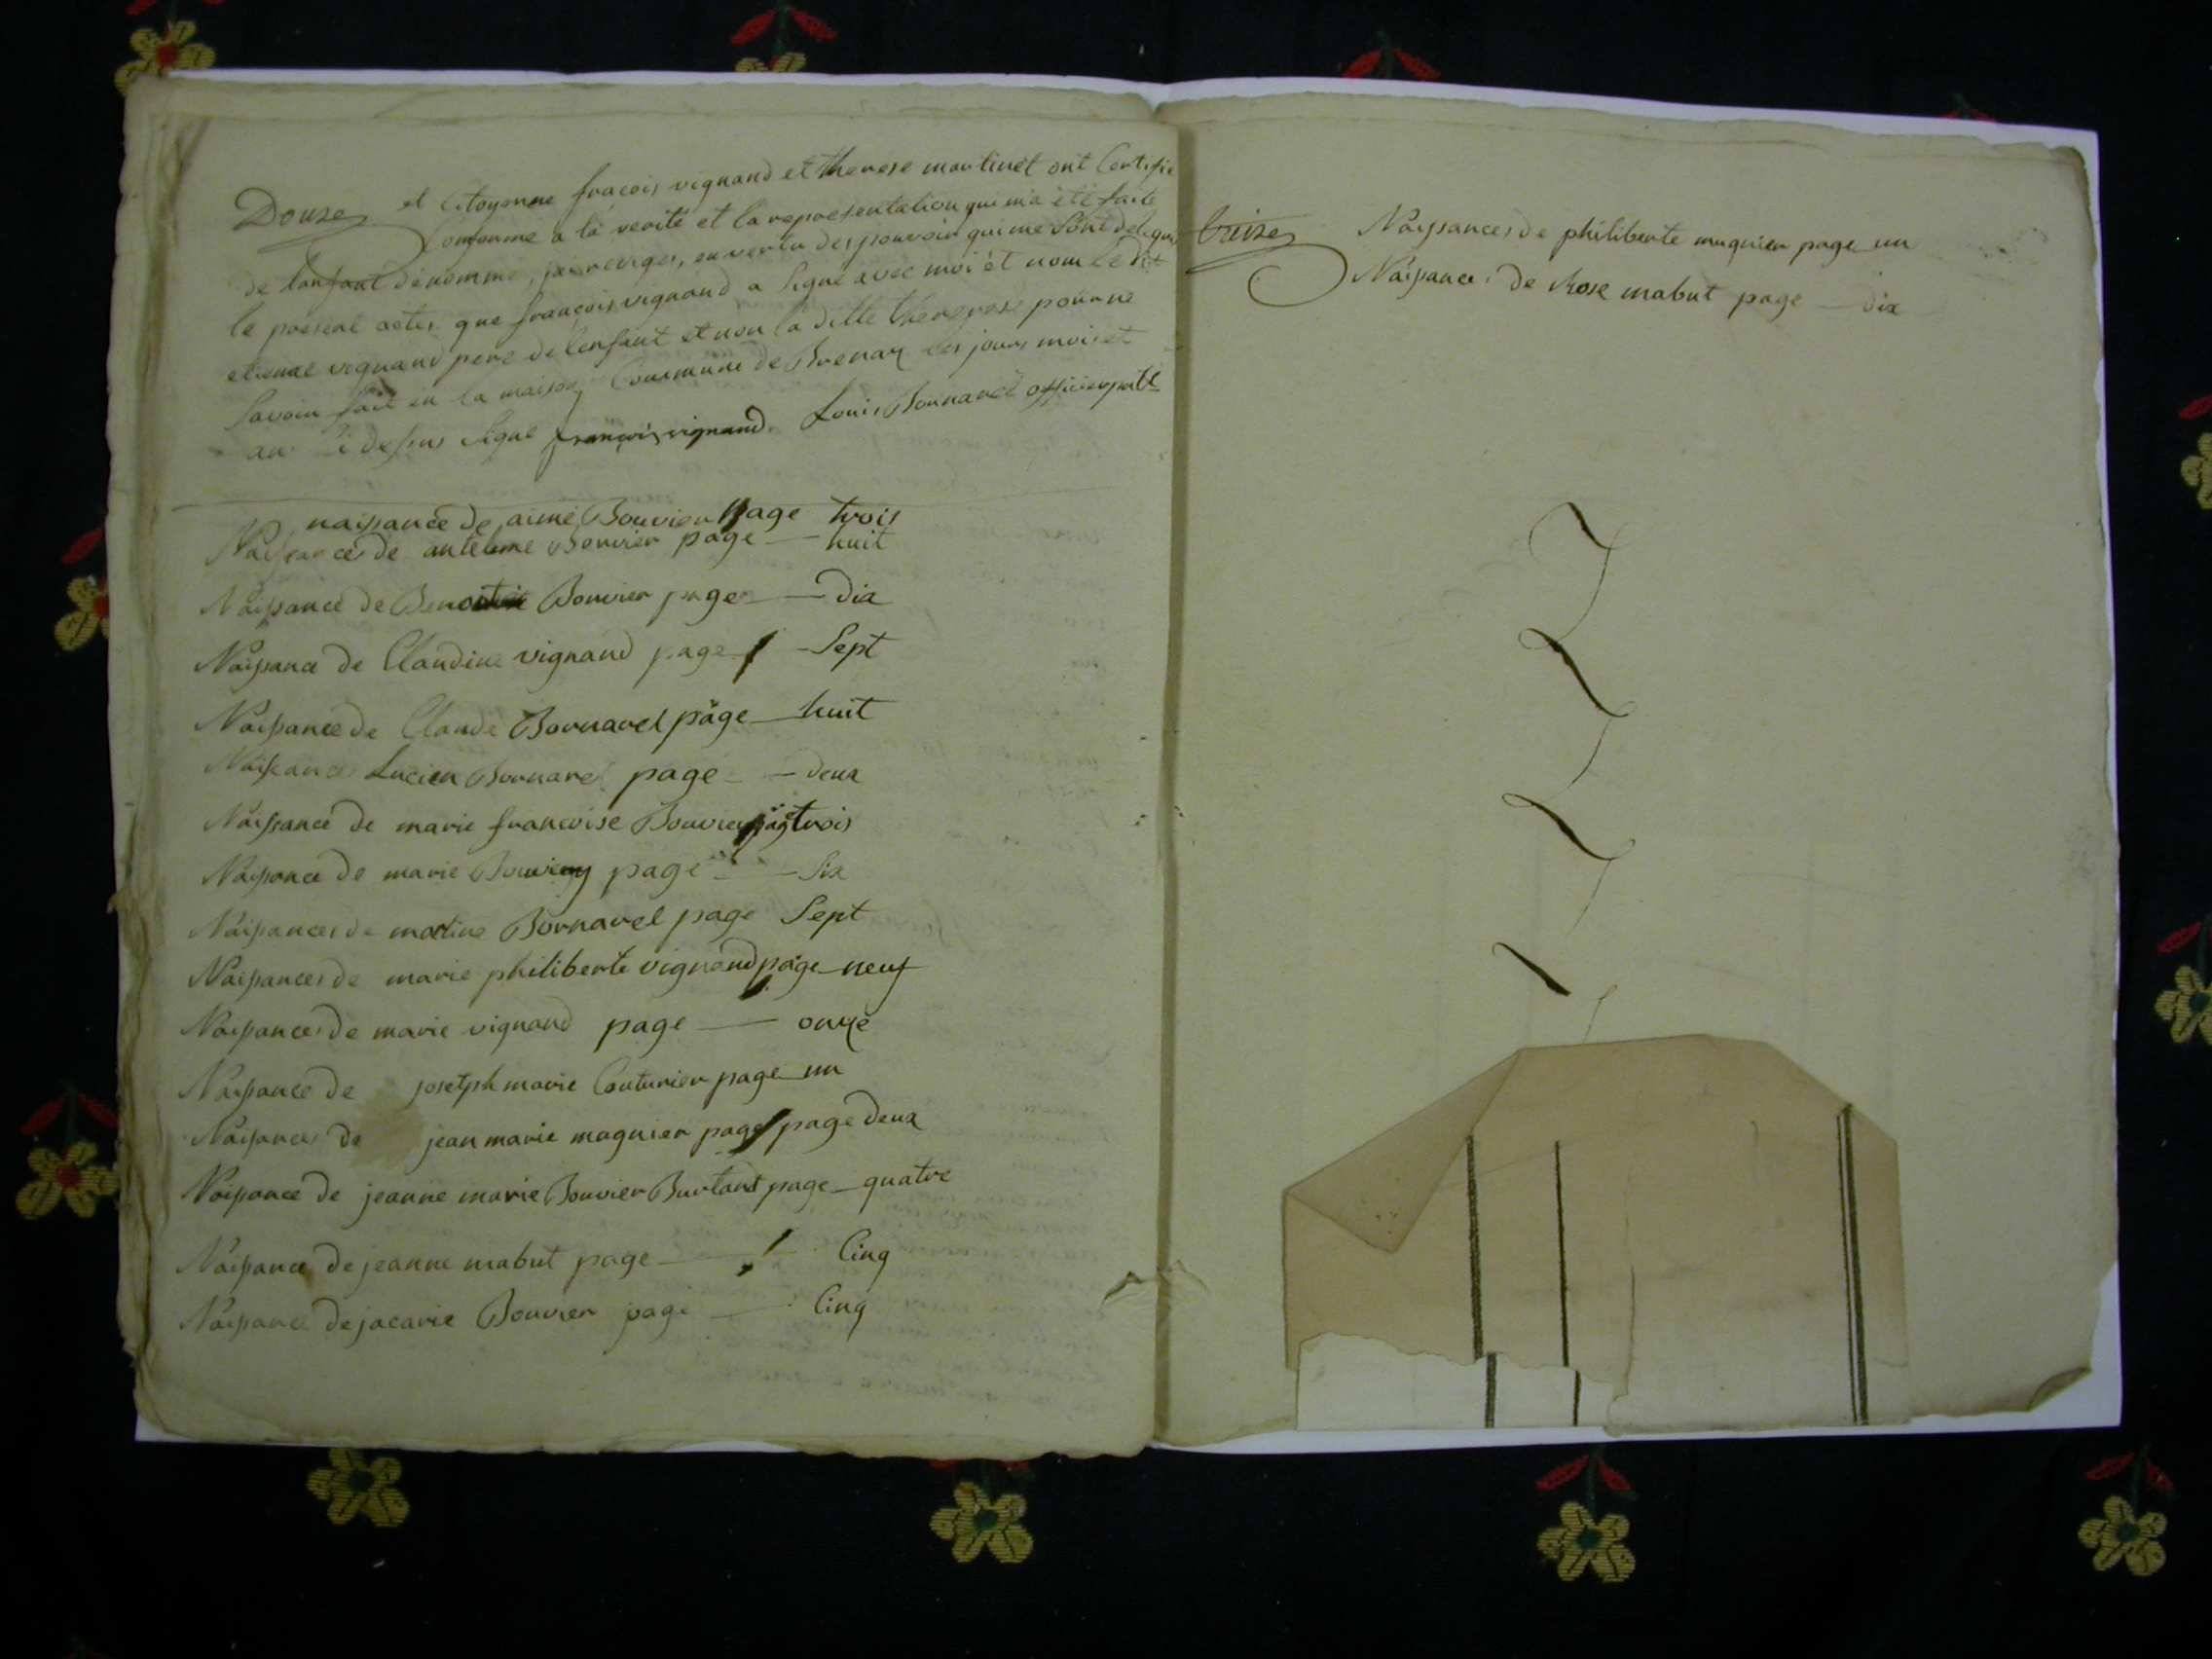 Douze et Citoyenne fracois vignand et therese martinet ont Certifie
Conforme a la verité et la representation qui m'a été faite
de lanfant dénommé, jai rediges, en vertu des pouvoir qui me sont delegués
le present actes que françois vignand a signé avec moi et nom le dit
etienne vignand pere de lenfant et non la ditte theregese pour ne
savoir fait en la maison Commune de Brenaz les jours mois et
an ci dessus signé françois vignand Louis Bornarel officier
naissance de aimé Bouvier page trois
Naissances de antelme Bouvier page — huit
Naissance de Bouvier page — dix
Naissance de Claudine vignand page Sept
Naissance de Claude Bornarel page huit
Naissances Lucien Bornarel page — deux
Naissance de marie francoise Bouvier page trois
Naissance de marie page — Six
Naissances de martine Bornarel page Sept
Naissances de marie philiberte vignand page neuf
Naissances de marie vignand page — onze
Naissance de josetph marie Couturier page un
Naissances de jean marie mugnier page page deux
Naissance de jeanne marie Bouvier Burtant page quatre
Naissance de jeanne mabut page — Cinq
Naissance de jacarie Bouvier page — Cinq
treize Naissances de philiberte mugnier page un
Naissance de Rose mabut page — dix